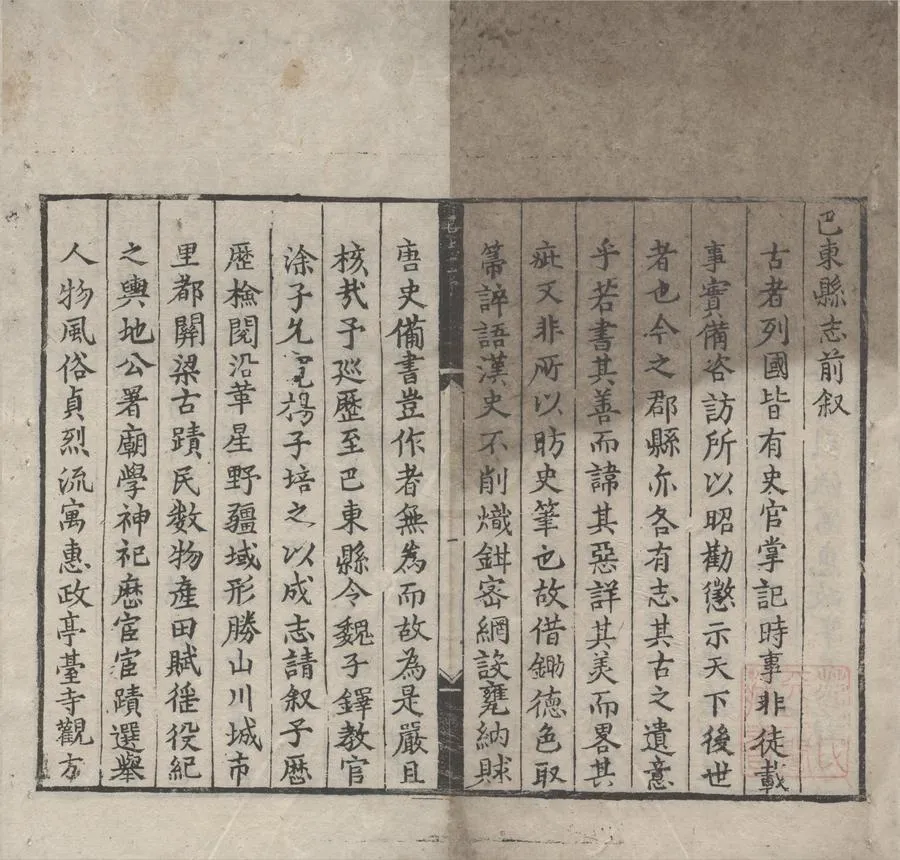 巴東縣志前叙
古者列國皆有史官掌記時事非徒載
事實備咨訪所以昭勸懲示天下後世
者也今之郡縣亦各有志其古之遺意
乎若書其善而諱其惡詳其美而畧其
疵又非所以昉史筆也故借鋤德色取
箒誶語漢史不削熾鉗宻網設甕納賕
唐史備書豈作者無為而故為是嚴且
核㢤予廵歷至巴東縣令魏子鐸教官
涂子允楊子培之以成志請叙予歷
歷檢閲沿革星野疆域形勝山川城市
里都關梁古蹟民数物產田賦徭役紀
之輿地公署廟學神祀歷宦宦蹟選舉
人物風俗貞烈流寓惠政亭臺寺觀方